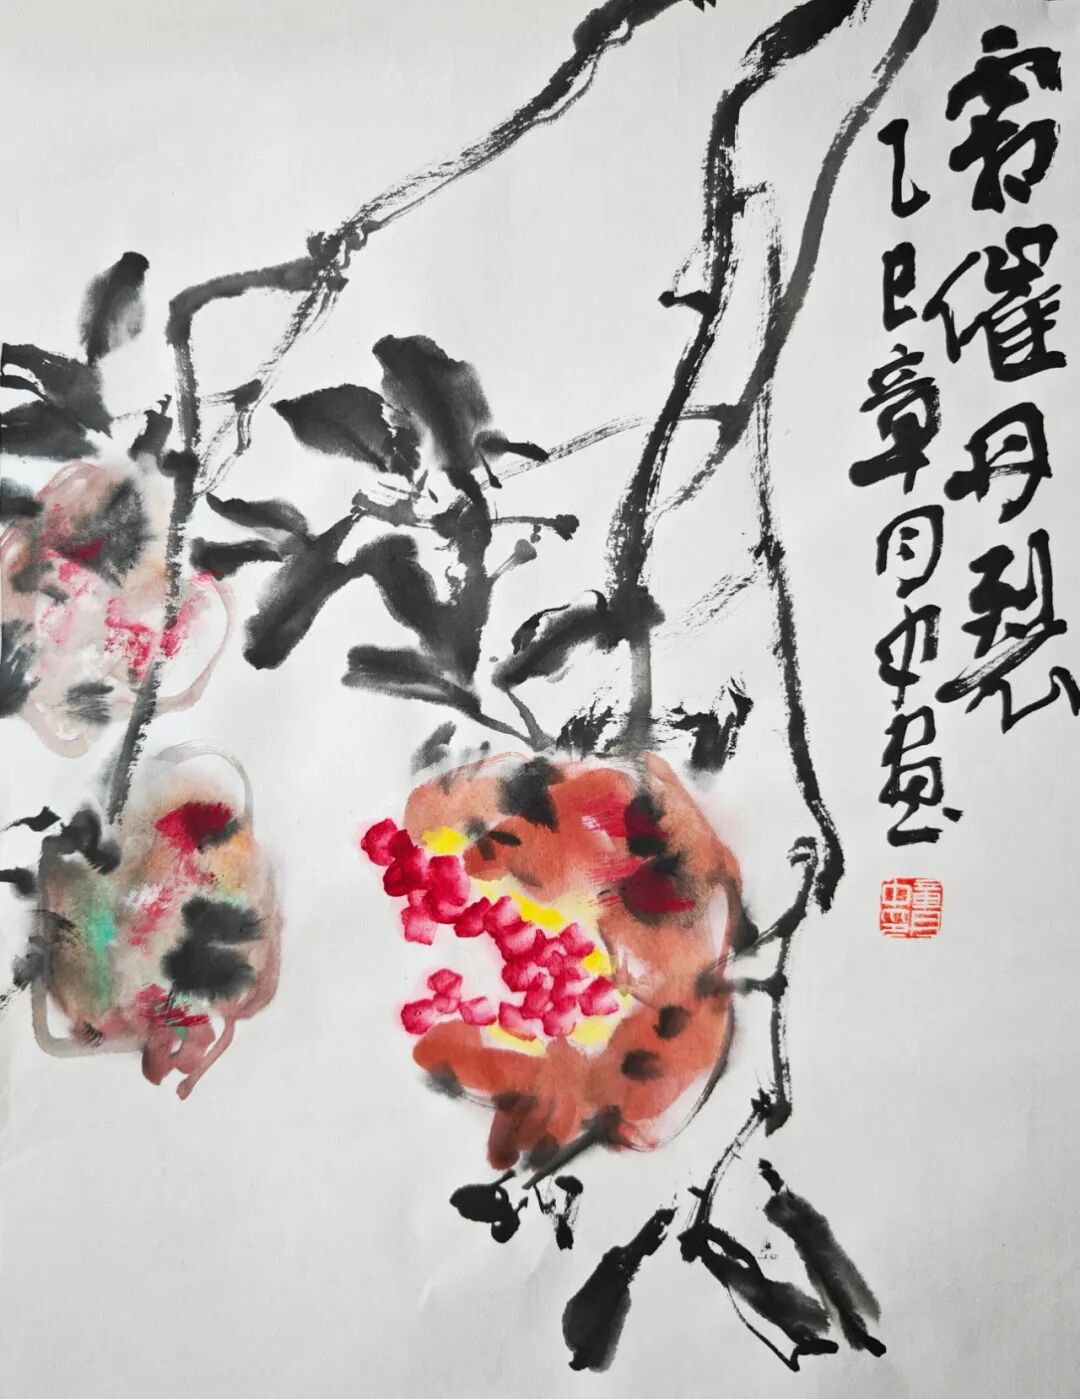 霜催丹裂
乙巳章月中画